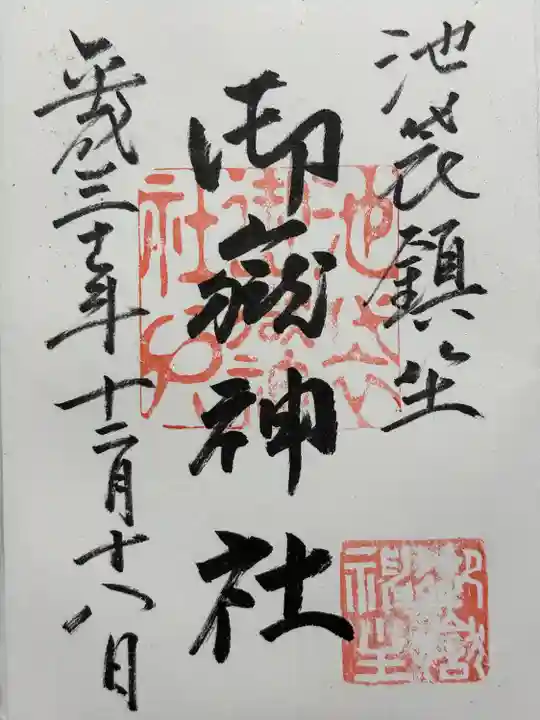 池袋鎮坐
御嶽神社
平成三十年十二月十八日
池袋
御嶽神
社印